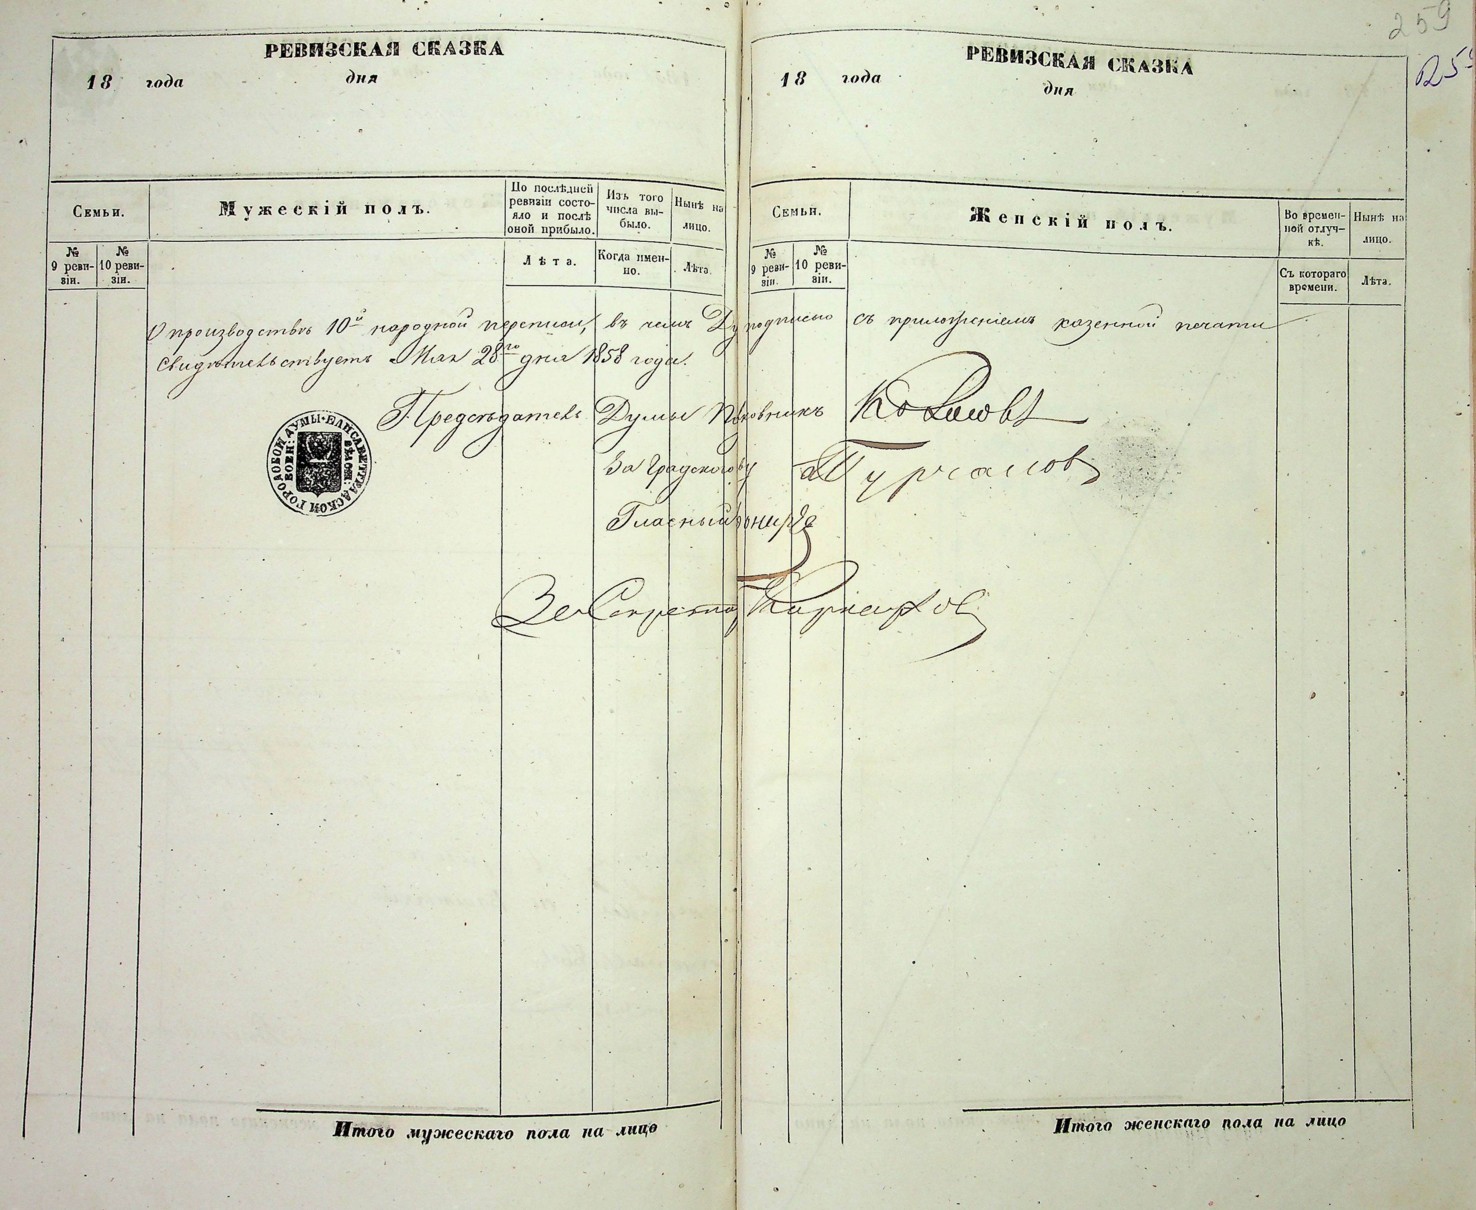 259
РЕВИЗСКАЯ СКАЗКА
18 года дня
Семьи.
Мужескій полъ.
По послѣдней ревизіи состояло и послѣ оной прибыло.
Изъ того числа выбыло.
Нынѣ на лицо.
№ 9 ревизіи.
№ 10 ревизіи.
Лѣта.
Когда именно.
Лѣта.
РЕВИЗСКАЯ СКАЗКА
18 года дня
Семьи.
Женскій полъ.
Во временной отлучкѣ.
Нынѣ на лицо.
№ 9 ревизіи.
№ 10 ревизіи.
Съ котораго времени.
Лѣта.
О производствѣ 10й народной переписи, въ чемъ Ду подписью съ приложеніемъ казенной печати
свидѣтельствуетъ Мая 28го дня 1858 года.
Предсѣдатель Думы
За Градского
Гласный
За Секрета
ЕЛИСАВЕТГРАДСКОЙ ГОРОДОВОЙ ДУМЫ
Итого мужескаго пола на лицо
Итого женскаго пола на лицо